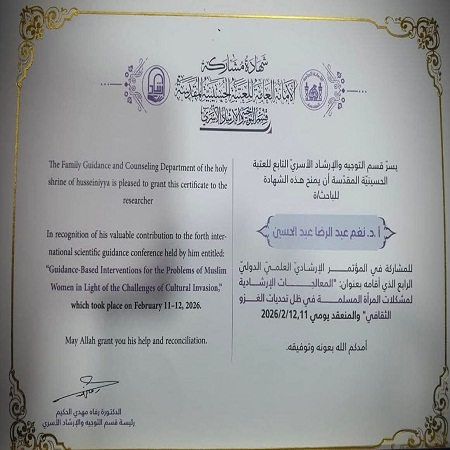 شهادة مشاركة
الأمانة العامة للعتبة الحسينية المقدسة
قسم التوجيه والإرشاد الأسري
The Family Guidance and Counseling Department of the holy
shrine of husseiniyya is pleased to grant this certificate to the
researcher
In recognition of his valuable contribution to the forth inter-
national scientific guidance conference held by him entitled:
“Guidance-Based Interventions for the Problems of Muslim
Women in Light of the Challenges of Cultural Invasion,”
which took place on February 11–12, 2026.
May Allah grant you his help and reconciliation.
يسرّ قسم التوجيه والإرشاد الأسريّ التابع للعتبة
الحسينيّة المقدّسة أن يمنح هذه الشهادة
للباحث/ة
أ.د. نغم عبد الرضا عبد الحسين
للمشاركة في المؤتمــر الإرشاديّ العلمــي الدوليّ
الرابع الذي أقامه بعنوان: "المعالجــات الإرشــاديــة
لمشكلات المرأة المسلمــة في ظل تحديات الغــزو
الثقافي" والمنعقد يومي 2026/2/12,11
أمدكم الله بعونه وتوفيقه.
الدكتورة رفاه مهدي الحكيم
رئيسة قسم التوجيه والإرشاد الأسري